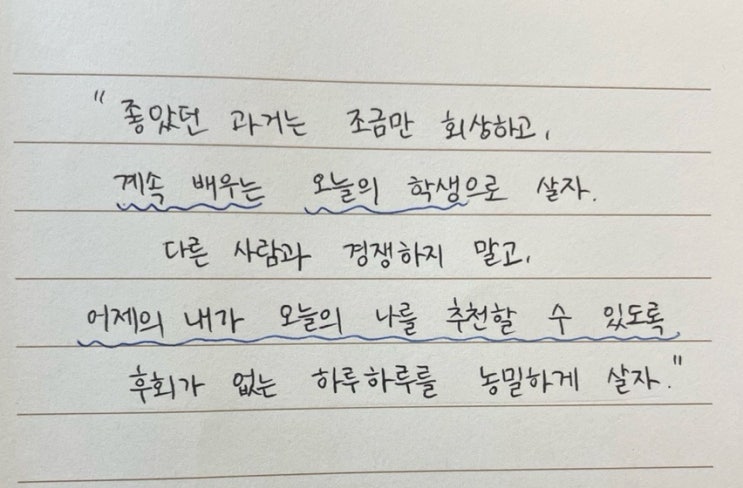 "좋았던 과거는 조금만 회상하고,
계속 배우는 오늘의 학생으로 살자.
다른 사람과 경쟁하지 말고,
어제의 내가 오늘의 나를 추천할 수 있도록
후회가 없는 하루하루를 농밀하게 살자."